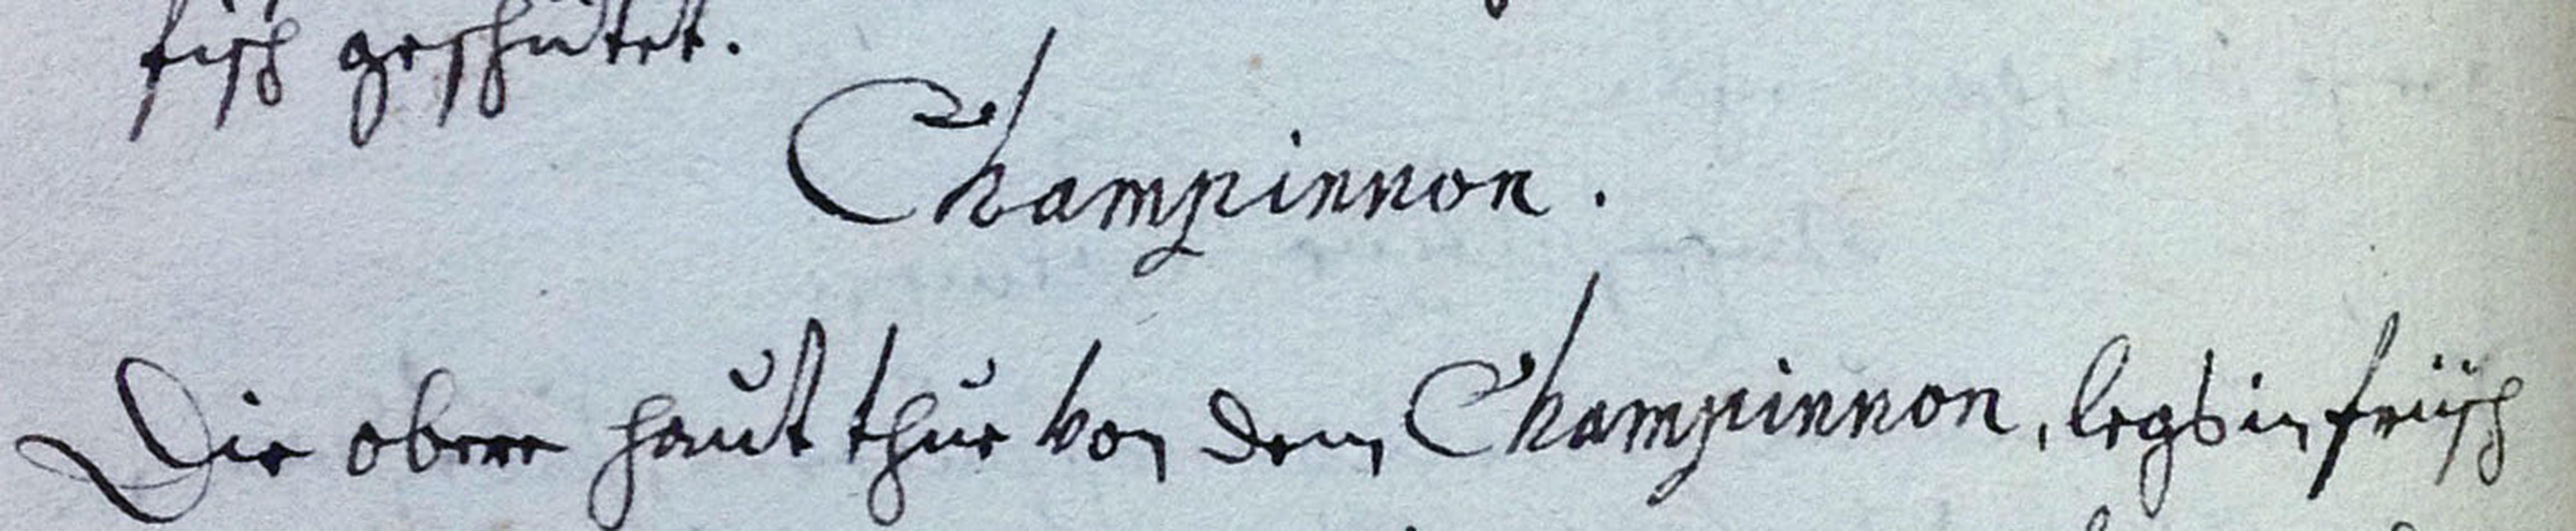 fisch geschütet.
Champinnon.
Die obere haut thue von dem Champinnon, legs in frisch